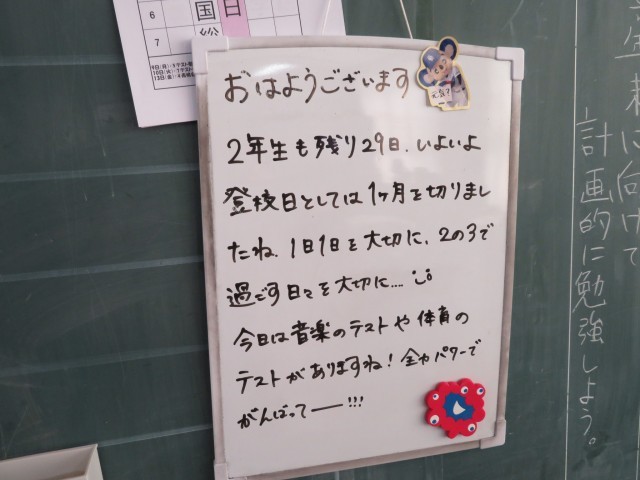 おはようございます
2年生も残り29日、いよいよ
登校日としては1ヶ月を切りまし
たね。1日1日を大切に、2の3で
過ごす日々を大切に....
今日は音楽のテストや体育の
テストがありますね!全力パワーで
がんばってー!!!
計画的に勉強しよう。
に向けて
6
国
日
7